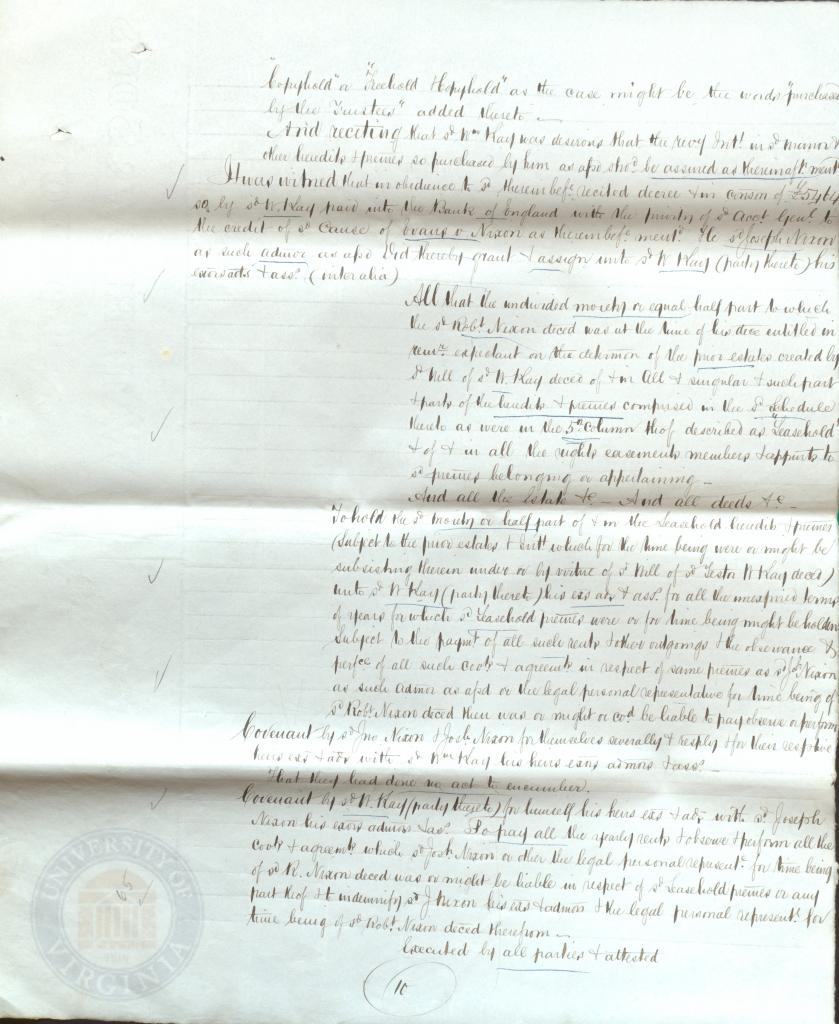 "Copyhold" or "Freehold & Copyhold" as the case might be the words "purchased
by the Trustees" added thereto —
And reciting that sd. Wm Kay was desirous that the revy Intt. in sd. manor &
other heredits & premes so purchased by him as afsd shod. be assured as thereinaft. ment
It was witned that in obedience to sd. thereinbef. recited decree & in conson of £5464
so by sd. W. Kay paid into the Bank of England with the privity of sd. Acct. Genl. to
the credit of sd. Cause of Evans v Nixon as thereinbef. mentd. He sd. Joseph Nixon
as such admor as afsd Did thereby grant & assign unto sd. W Kay (party thereto) his
exors ads & ass. (inter alia)
All that the undivided moiety or equal half part to which
the sd. Robt. Nixon deced was at the time of his dece entitled in
remr. expectant on the determon of the prior estates created by
sd. Will of sd. W. Kay deced of & in All & singular & such part
& parts of the heredits & premes comprised in the sd. schedule
thereto as were in the 5th Column thof described as "Leasehold"
& of & in all the rights easements members & appurts to
sd. premes belonging or appertaining —
And all the Estate &c — And all deeds &c —
To hold the sd. moiety or half part of & in the Leasehold heredits & premes
(Subject to the prior estates & intt. which for the time being were or might be
subsisting therein under or by virtue of sd. Will of sd. Testor W Kay deced)
unto sd. W Kay (party thereto) his exs ads & ass. for all the unexpired terms
of years for which sd. Leasehold premes were or for time being might be holden
Subject to the paymt. of all such rents & other outgoings & the observance &
perfce of all such covts & agreemts in respect of same premes as sd. Jos. Nixon
as such admor as afsd or the legal personal representative for time being of
sd. Robt. Nixon deced then was or might or cod. be liable to pay observe or perform
Covenant by sd. Jno Nixon & Josh. Nixon for themselves severally & resply & for their respective
heirs exs & ads with sd. Wm Kay his heirs exors admors & ass. —
That they had done no act to encumber.
Covenant by sd. W. Kay (party thereto) for himself his heirs exs & ads with sd. Joseph
Nixon his exors admors & ass. To pay all the yearly rents & observe & perform all the
covts & agreemts which sd. Josh. Nixon or other the legal personal represent. for time being
of sd. R. Nixon deced was or might be liable in respect of sd. Leasehold premes or any
part thof & to indemnify sd. J Nixon his exs & admors & the legal personal represent. for
time being of sd. Robt. Nixon deced therefrom —
Executed by all parties & attested
10
UNIVERSITY OF VIRGINIA
1819